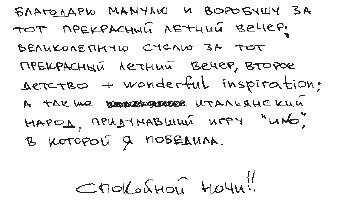 БЛАГОДАРЮ МАМУЛЮ И ВОРОБУШУ ЗА
ТОТ ПРЕКРАСНЫЙ ЛЕТНИЙ ВЕЧЕР;
ВЕЛИКОЛЕПНУЮ СУСЛЮ ЗА ТОТ
ПРЕКРАСНЫЙ ЛЕТНИЙ ВЕЧЕР, ВТОРОЕ
ДЕТСТВО + wonderful inspiration;
А ТАКЖЕ ИТАЛЬЯНСКИЙ
НАРОД, ПРИДУМАВШИЙ ИГРУ "УНО",
В КОТОРОЙ Я ПОБЕДИЛА.
СПОКОЙНОЙ НОЧИ!!